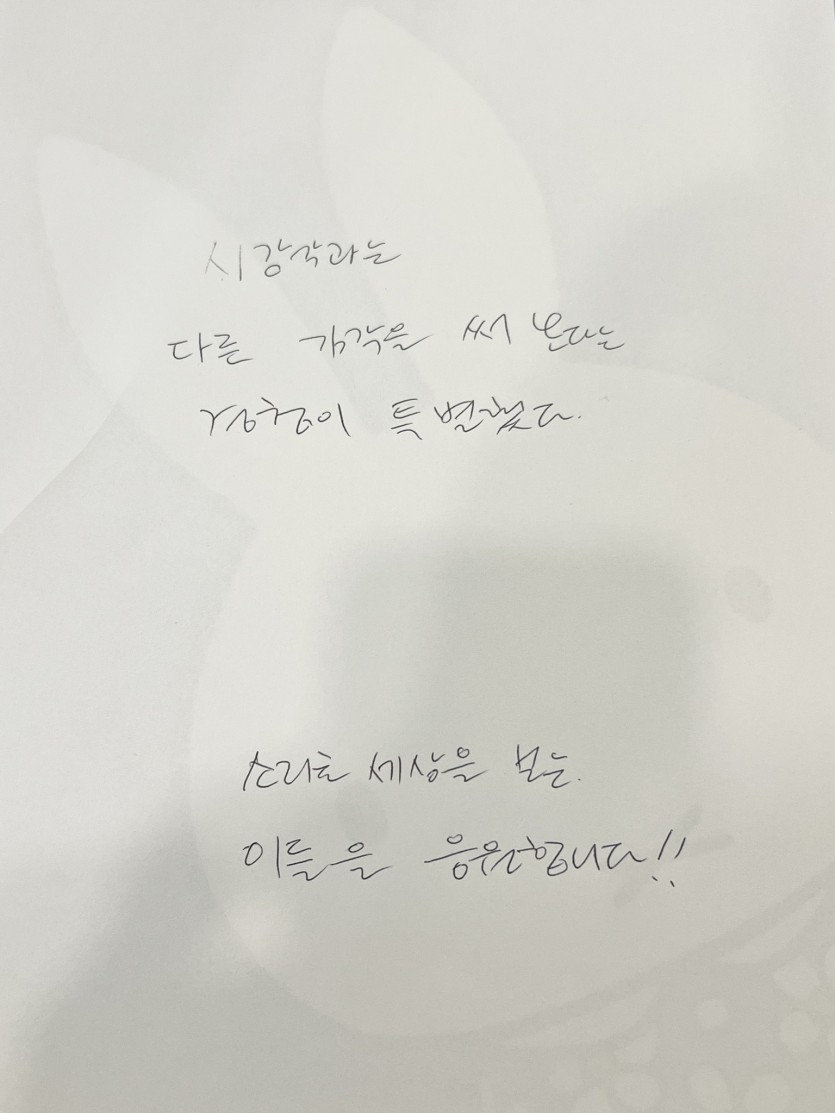 시감각과는
다른 감각을 써 본다는
경험이 특별했다.
소리로 세상을 보는.
이들을 응원합니다!!